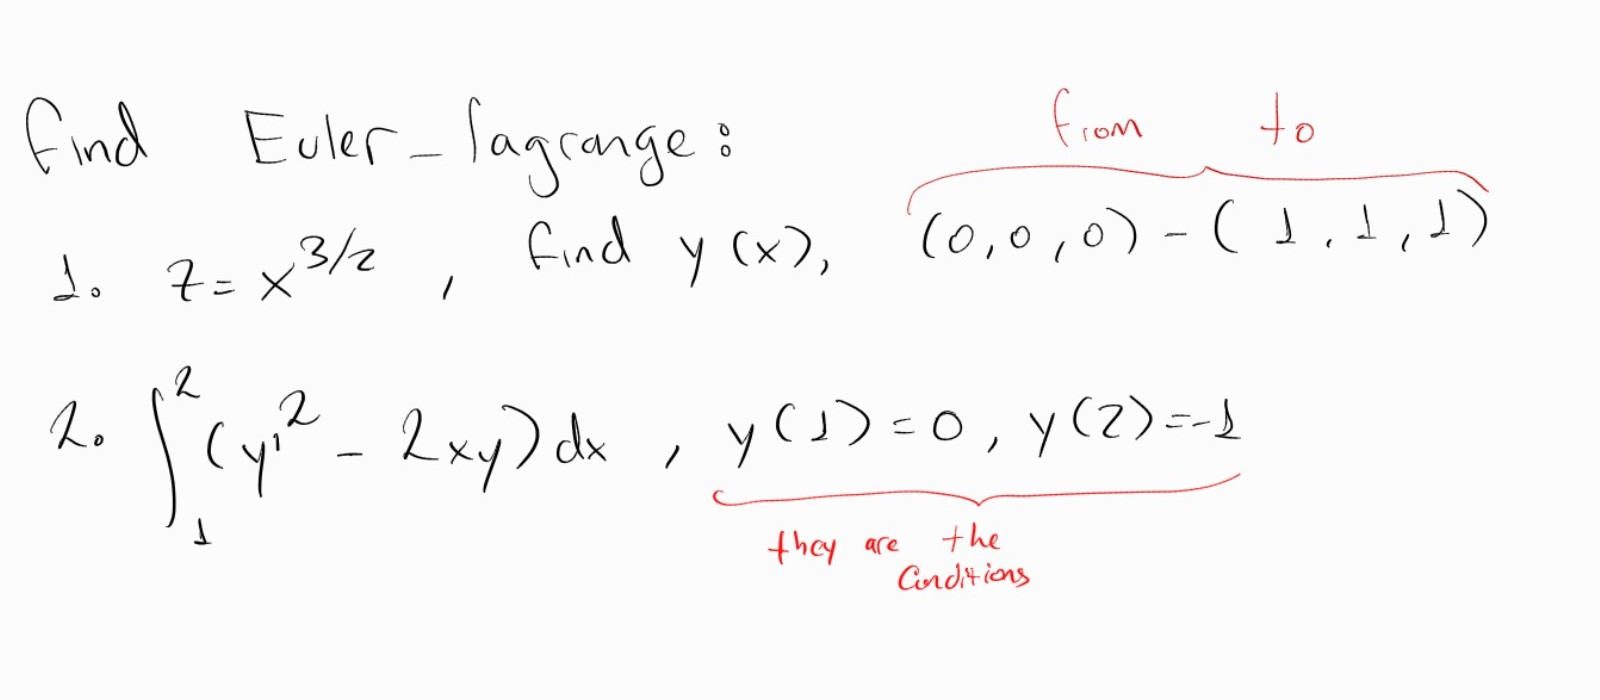 from to
Find Euler-lagrange:
1. z = x^{3/2}, find y(x), (0,0,0) - (1,1,1)
2. ∫_1^2 (y'^2 - 2xy) dx, y(1) = 0, y(2) = -1
they are the
Conditions